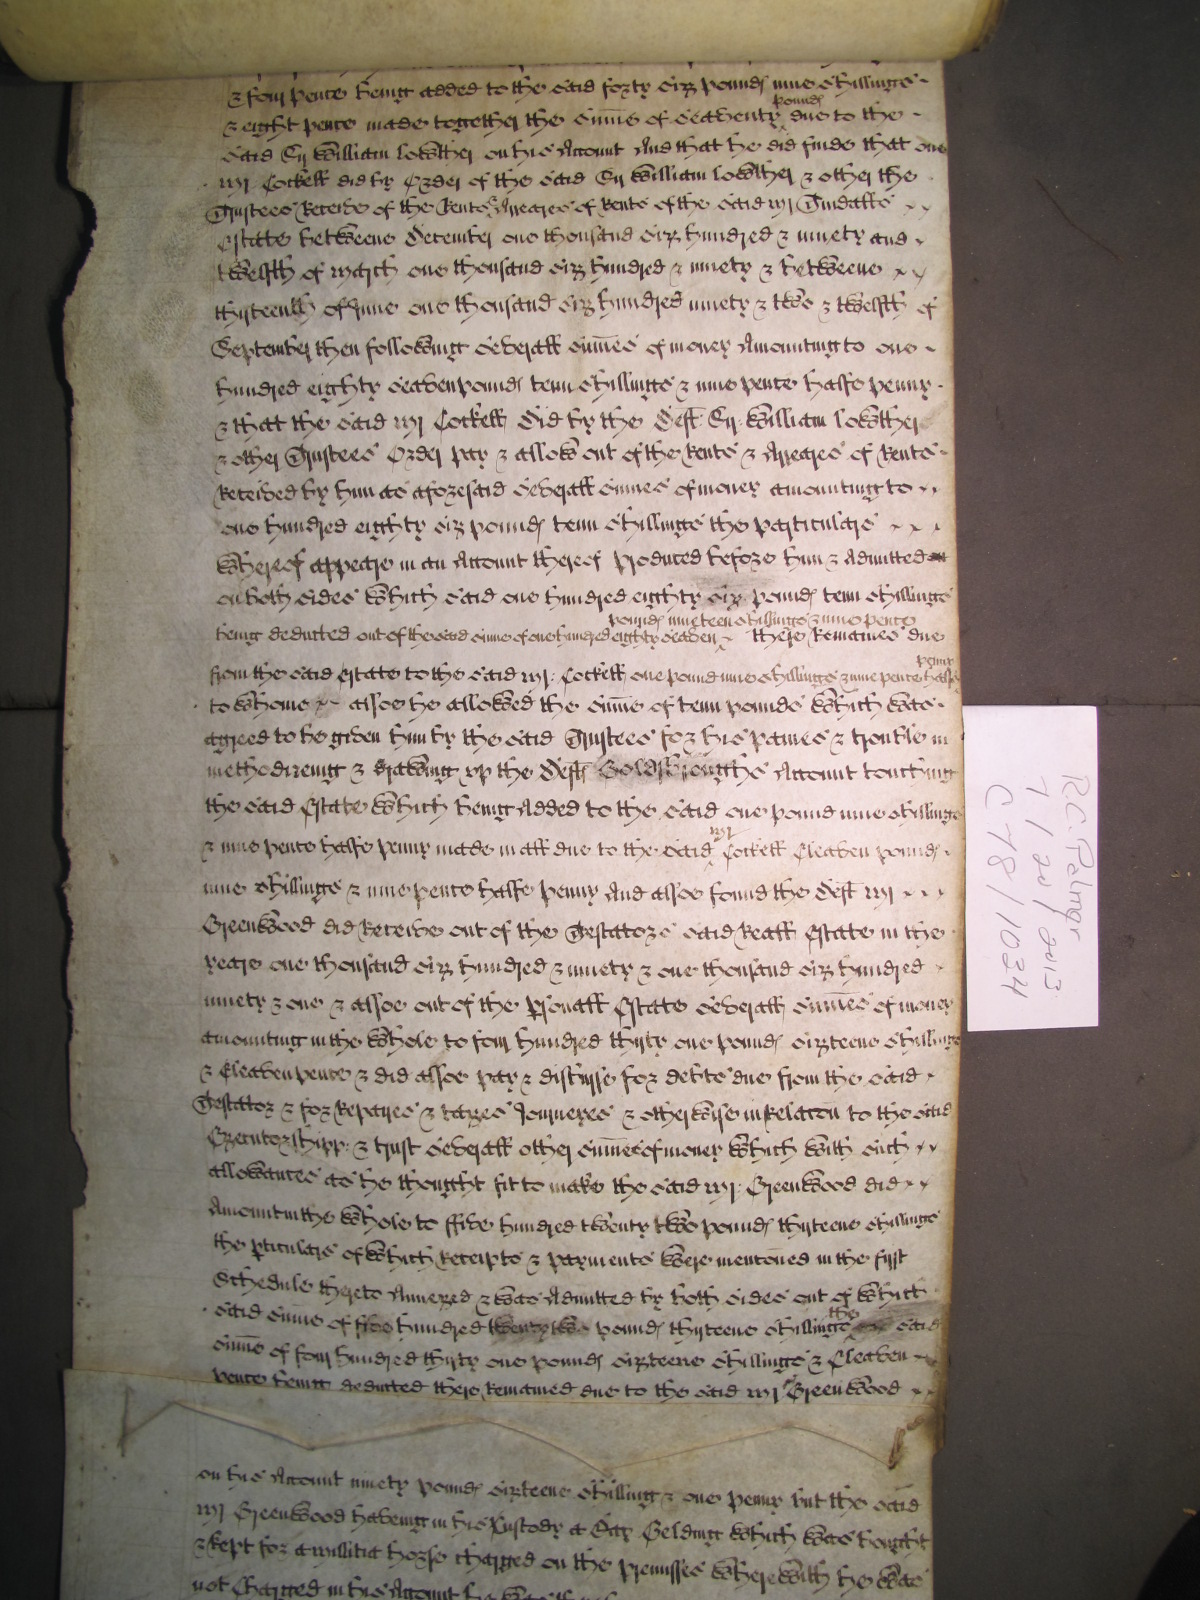 & four pence being added to the said forty six pounds nine shillings
& eight pence made together the sume of seaventy pounds due to the
said Sr William Lowther on his Account And that he did finde that one
Mr Cockell did by Order of the said Sr William Lowther & other the
Trustees Receive of the Rents & Arreares of Rents of the said Mr Tindalls
Estate betweene December one thousand six hundred & ninety and
twelfth of March one thousand six hundred & ninety & betweene
thirteenth of June one thousand six hundred ninety & two & twelfth of
September then following severall sumes of money Amounting to one
hundred eighty seaven pounds tenn shillings & nine pence halfe penny
& that the said Mr Cockell did by the Deft Sr William Lowther
& other Trustees Order pay & allow out of the Rents & Arreares of Rents
Received by him as aforesaid severall sumes of money amounting to
one hundred eighty six pounds tenn shillings the particulars
whereof appeare in an Account thereof produced before him & Admitted
on both sides which said one hundred eighty six pounds tenn shillings
being deducted out of the said sume of one hundred eighty seaven pounds nineteen shillings & nine pence there Remaines due
from the said Estate to the said Mr Cockell one pound nine shillings & nine pence halfe penny
to whome alsoe he allowed the sume of tenn pounds which was
agreed to be given him by the said Trustees for his paines & trouble in
methodizeing & drawing up the Deft Goldsbroughs Account touching
the said Estate which being Added to the said one pound nine shillings
& nine pence halfe penny made in all due to the said Mr Cockell Eleaven pounds
nine shillings & nine pence halfe penny And alsoe found the Deft Mr
Greenwood did Receive out of the Testators said Reall Estate in the
yeare one thousand six hundred & ninety & one thousand six hundred
ninety & one & alsoe out of the psonall Estate severall sumes of money
amounting in the whole to four hundred thirty one pounds sixteene shillings
& Eleaven pence & did alsoe pay & disburse for debts due from the said
Testator & for Repaires & taxes Journeyes & otherwise in Relacon to the said
Executorshipp & trust severall other sumes of money which with such
allowances as he thought fit to make the said Mr Greenwood did
Amount in the whole to ffive hundred twenty two pounds thirteene shillings
the pticulars of which Receipts & payments were mentoned in the first
Schedule thereto Annexed & was Admitted by both sides out of which
said sume of five hundred twenty two pounds thirteene shillings the said
sume of four hundred thirty one pounds sixteene shillings & Eleaven
pence being deducted there Remained due to the said Mr Greenwood
on his Account ninety pounds sixteene shillings & one penny but the said
Mr Greenwood haveing in his Custody a Bay Gelding which was bought
& kept for a militia horse charged on the premisses wherewith he was
not Charged in his Account
R.C. Palmer
7/1/2013
C 78/1034